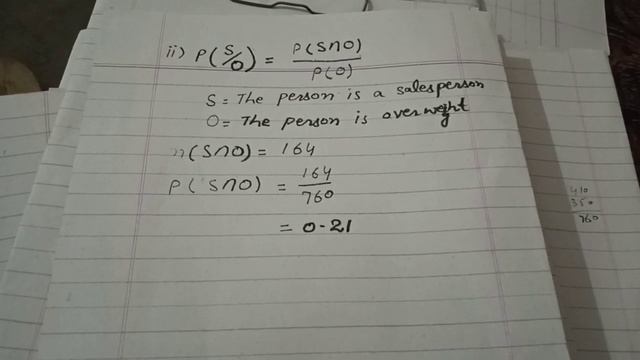 ii) P(S/O) = P(S∩O) / P(O)
S = The person is a salesperson
O = The person is overweight
n(S∩O) = 164
P(S∩O) = 164 / 760
= 0.21
410
350
760